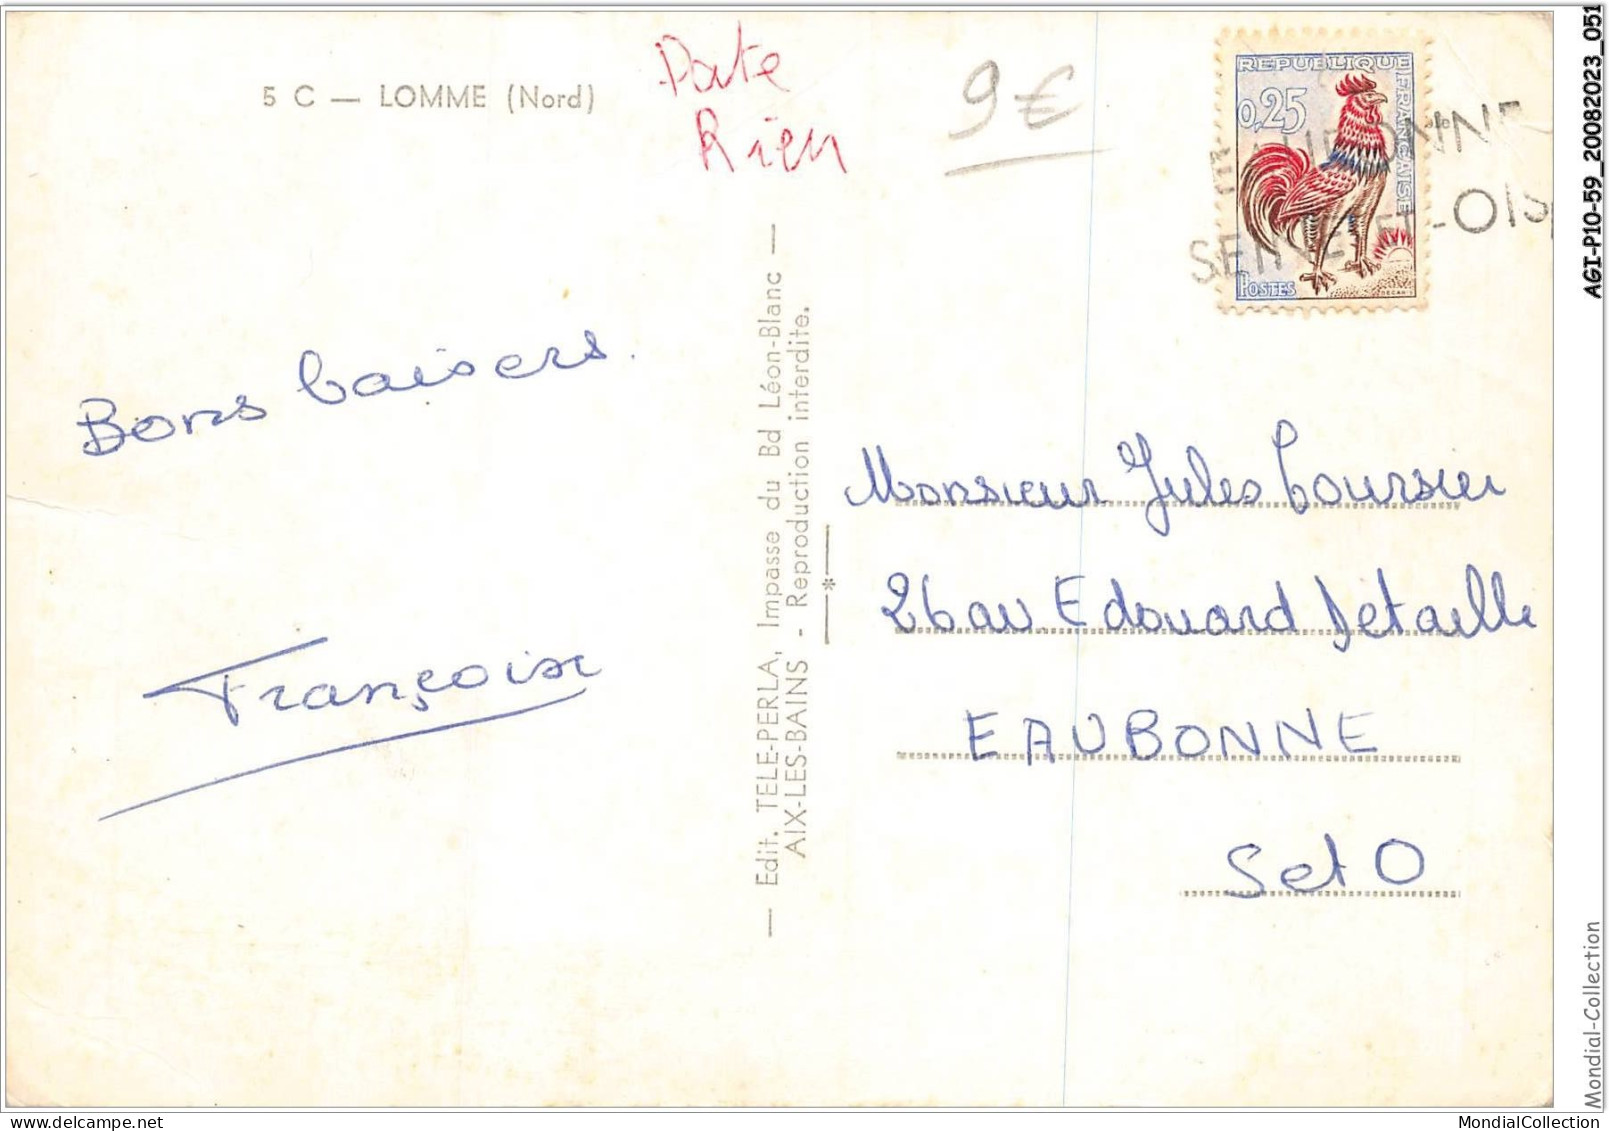 5 C — LOMME (Nord)
Date
Rien
9€
REPUBLIQUE
FRANÇAISE
0,25
POSTES
DECARIS
AUBONNE
SEINE-ET-OIS
Bons baisers.
Françoise
— Edit. TELE-PERLA, Impasse du Bd Léon-Blanc —
AIX-LES-BAINS - Reproduction interdite.
Monsieur Jules Coursier
26 av Edouard Detaille
EAUBONNE
S et O
AGI-P10-59_20082023_051
Mondial-Collection
MondialCollection